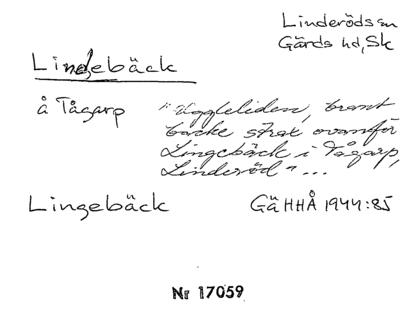 Linderöds sn
Gärds hd, Sk
Lingebäck
å Tågarp
"Uggleliden, brant
backe strax ovanför
Lingebäck i Tågarp,
Linderöd" ...
Lingebäck
GäHHÅ 1944:85
Nr 17059